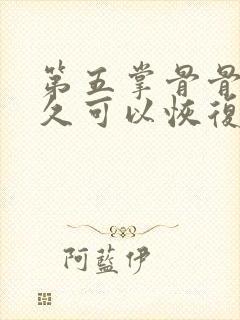 第五掌骨骨
久可以恢復
阿藍伊